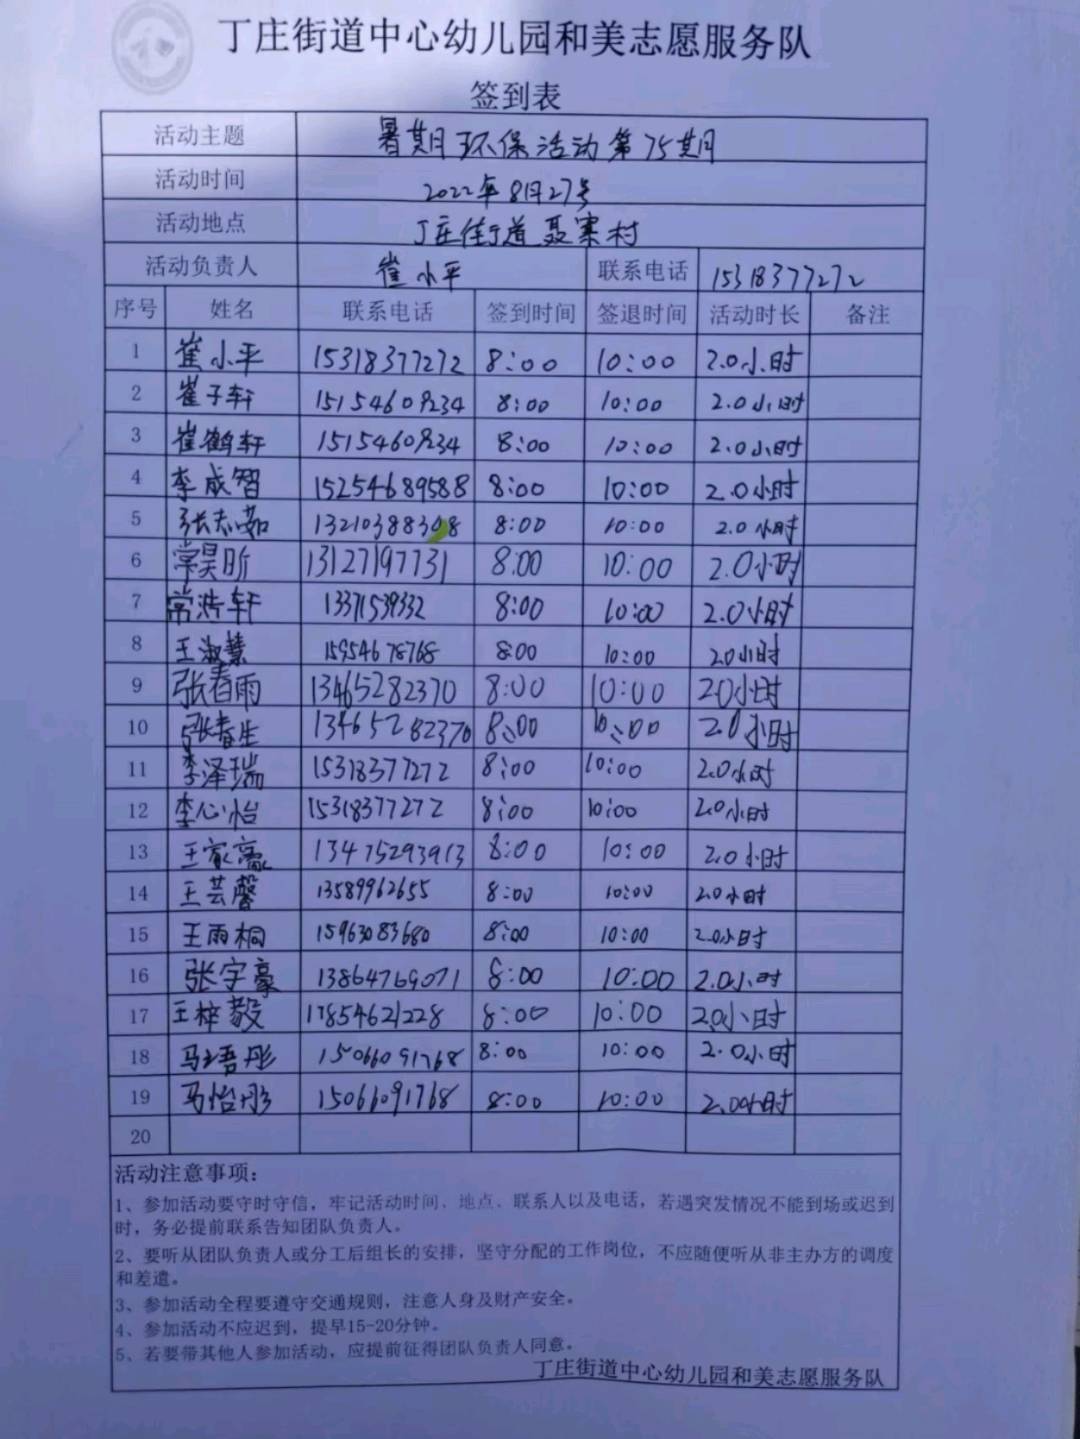 丁庄街道中心幼儿园和美志愿服务队
签到表
活动主题 暑期环保活动第75期
活动时间 2022年8月27号
活动地点 丁庄街道聂寨村
活动负责人 崔小平 联系电话 15318377272
序号 姓名 联系电话 签到时间 签退时间 活动时长 备注
1 崔小平 15318377272 8:00 10:00 2.0小时
2 崔子轩 15154609234 8:00 10:00 2.0小时
3 崔鹤轩 15154609234 8:00 10:00 2.0小时
4 李成智 15254689588 8:00 10:00 2.0小时
5 张志茹 13210388308 8:00 10:00 2.0小时
6 常昊昕 13127197731 8:00 10:00 2.0小时
7 常浩轩 13371539332 8:00 10:00 2.0小时
8 王淑慧 15954678768 8:00 10:00 2.0小时
9 张春雨 13465282370 8:00 10:00 2.0小时
10 张春生 13465282370 8:00 10:00 2.0小时
11 李泽瑞 15318377272 8:00 10:00 2.0小时
12 李心怡 15318377272 8:00 10:00 2.0小时
13 王家豪 13475293913 8:00 10:00 2.0小时
14 王芸馨 13589962655 8:00 10:00 2.0小时
15 王雨桐 15963083680 8:00 10:00 2.0小时
16 张宇豪 13864769071 8:00 10:00 2.0小时
17 王梓毅 17854621228 8:00 10:00 2.0小时
18 马珸彤 15066091768 8:00 10:00 2.0小时
19 马怡彤 15066091768 8:00 10:00 2.0小时
20
活动注意事项：
1、参加活动要守时守信，牢记活动时间、地点、联系人以及电话，若遇突发情况不能到场或迟到
时，务必提前联系告知团队负责人。
2、要听从团队负责人或分工后组长的安排，坚守分配的工作岗位，不应随便听从非主办方的调度
和差遣。
3、参加活动全程要遵守交通规则，注意人身及财产安全。
4、参加活动不应迟到，提早15-20分钟。
5、若要带其他人参加活动，应提前征得团队负责人同意。
丁庄街道中心幼儿园和美志愿服务队